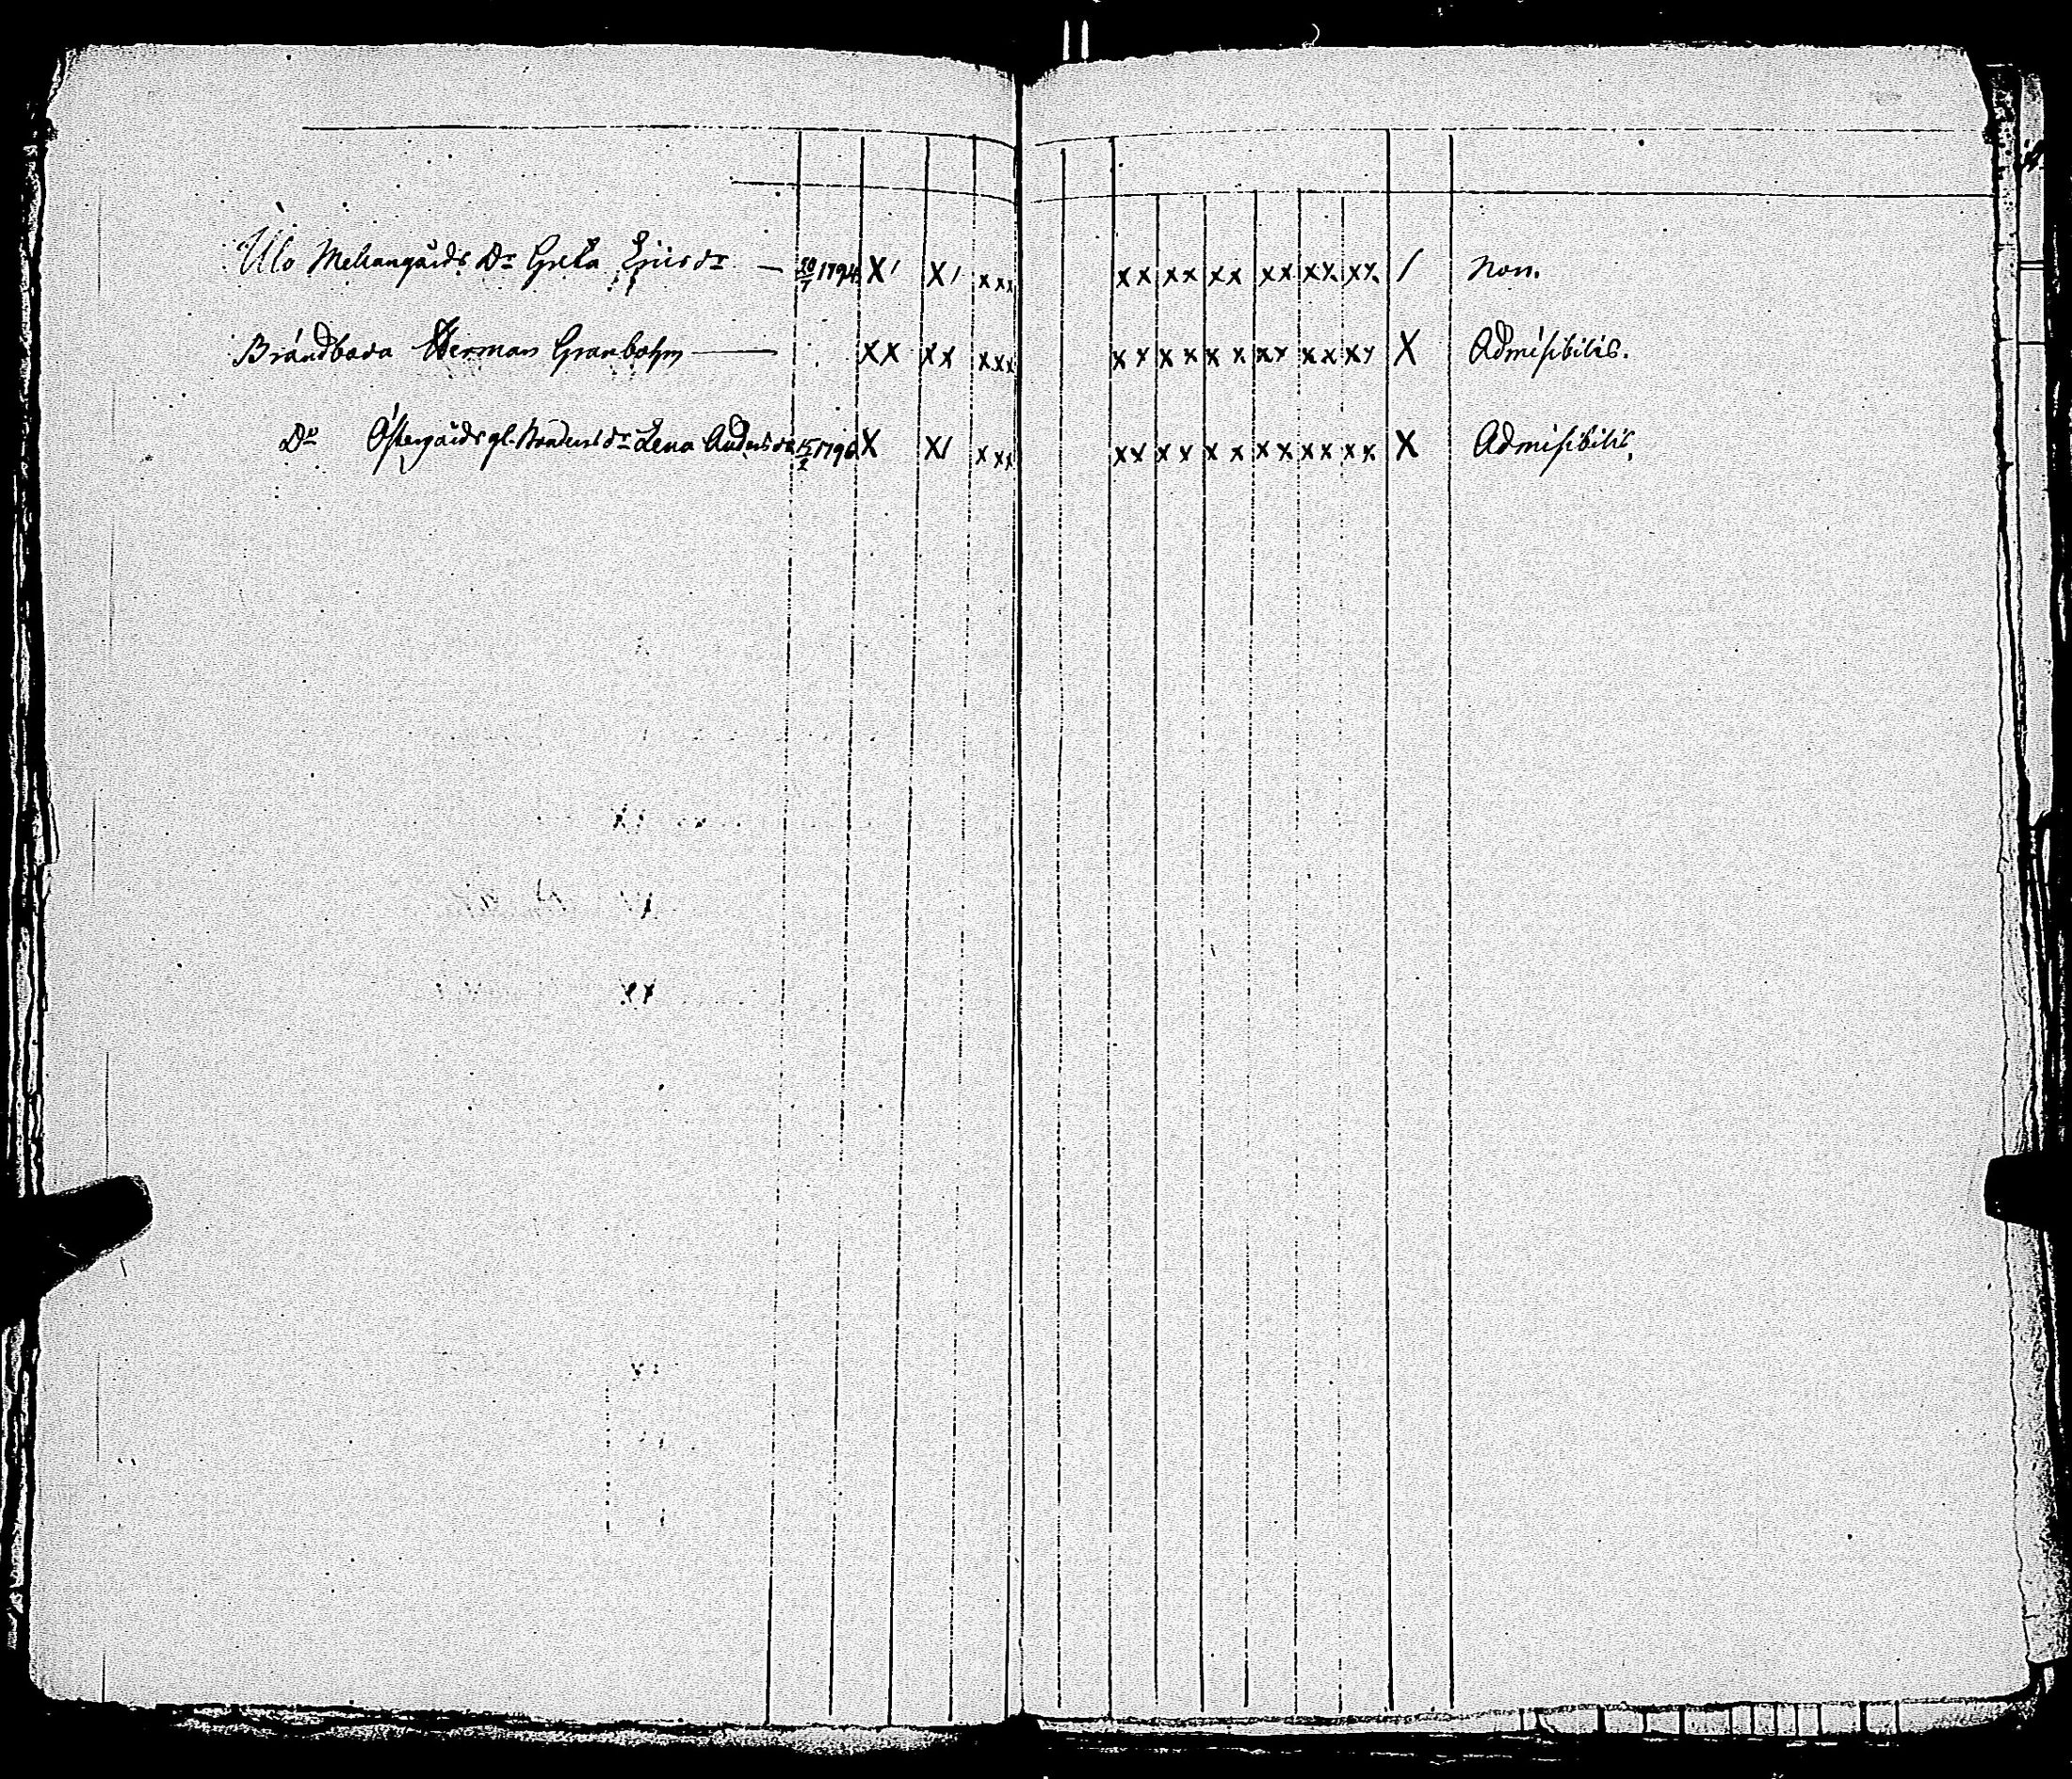 Ulo Mellangårds Dr Greta Ersdr — 30/7 1794 X/ X/ xxx xx xx xx xx xx xx / Non.
Brändbova Herman Granbohm — XX XX xxx xx xx xx xx xx xx X Admissibilis.
Do Östergårds gl. Lena Andersdr 15/2 1796 X X/ xxx xx xx xx xx xx xx X Admissibilis.